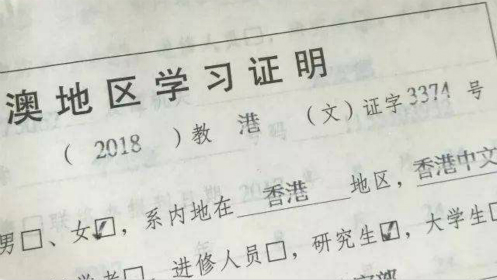 澳地区学习证明
( 2018 ) 教 港 (文) 证字 3374 号
男□、女☑, 系内地在 香港 地区, 香港中文
□、进修人员□, 研究生☑, 大学生□